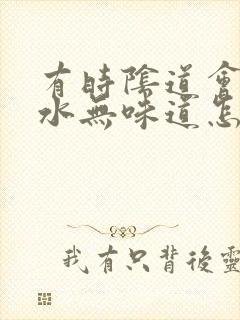 有時陰道會
水無味道怎
我有只背後靈